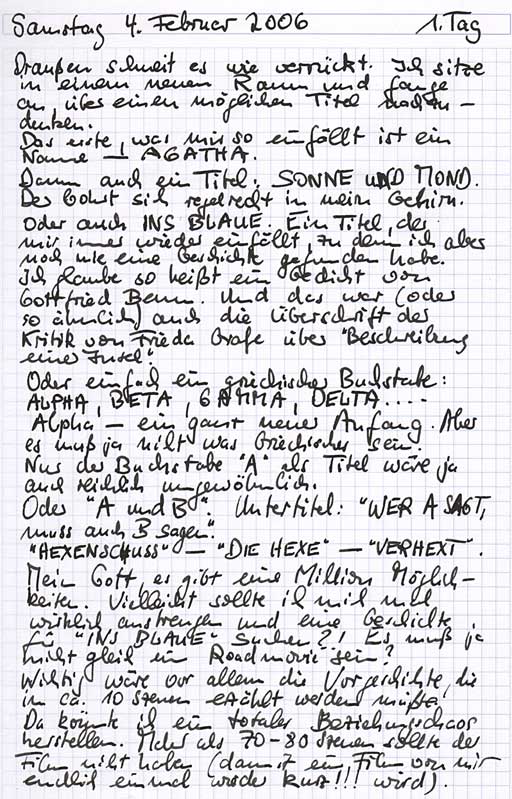 Samstag 4. Februar 2006 1. Tag
Draußen schneit es wie verrückt. Ich sitze
in einem neuen Raum und fange
an, über einen möglichen Titel nachzu-
denken.
Das erste, was mir so einfällt ist ein
Name — AGATHA.
Dann auch ein Titel: SONNE UND MOND.
Der bohrt sich regelrecht in mein Gehirn.
Oder auch INS BLAUE. Ein Titel, der
mir immer wieder einfällt, zu dem ich aber
noch nie eine Geschichte gefunden habe.
Ich glaube so heißt ein Gedicht von
Gottfried Benn. Und das war (oder
so ähnlich) auch die Überschrift der
Kritik von Frieda Grafe über "Beschreibung
einer Insel".
Oder einfach ein griechischer Buchstabe:
ALPHA, BETA, GAMMA, DELTA....
Alpha — ein ganz neuer Anfang. Aber
es muß ja nicht was Griechisches sein.
Nur der Buchstabe "A" als Titel wäre ja
auch reichlich ungewöhnlich.
Oder "A und B". Untertitel: "WER A SAGT,
muss auch B sagen".
"HEXENSCHUSS" — "DIE HEXE" — "VERHEXT".
Mein Gott, es gibt eine Million Möglich-
keiten. Vielleicht sollte ich mich mal
wirklich anstrengen und eine Geschichte
für "INS BLAUE" suchen?! Es muß ja
nicht gleich ein Roadmovie sein?
Wichtig wäre vor allem die Vorgeschichte, die
in ca. 10 Szenen erzählt werden müßte.
Da könnte ich ein totales Beziehungschaos
herstellen. Mehr als 70-80 Szenen sollte der
Film nicht haben (damit ein Film von mir
endlich einmal wieder kurz!!! wird).